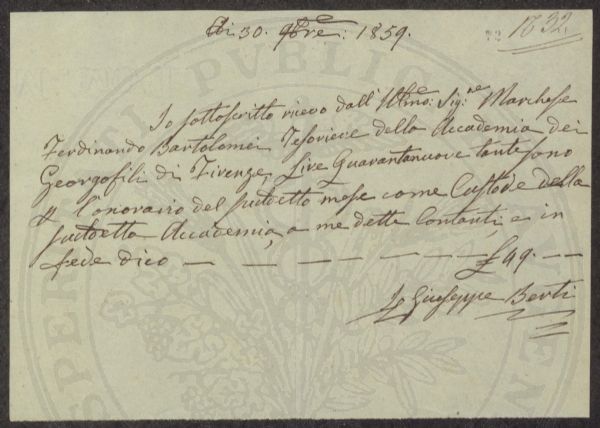 di 30. 9bre: 1859.
N° 32.
Io sottoscritto ricevo dall'Illmo: Sig:re Marchese
Ferdinando Bartolomei Tesoriere della Accademia dei
Georgofili di Firenze, Lire Quarantanuove tante sono
p l'onorario del sudetto mese come Custode della
sudetta Accademia, a me dette Contanti e in
fede dico — — — — — — £ 49. —
Io Giuseppe Berti
PROSPERITATI PUBLICAE